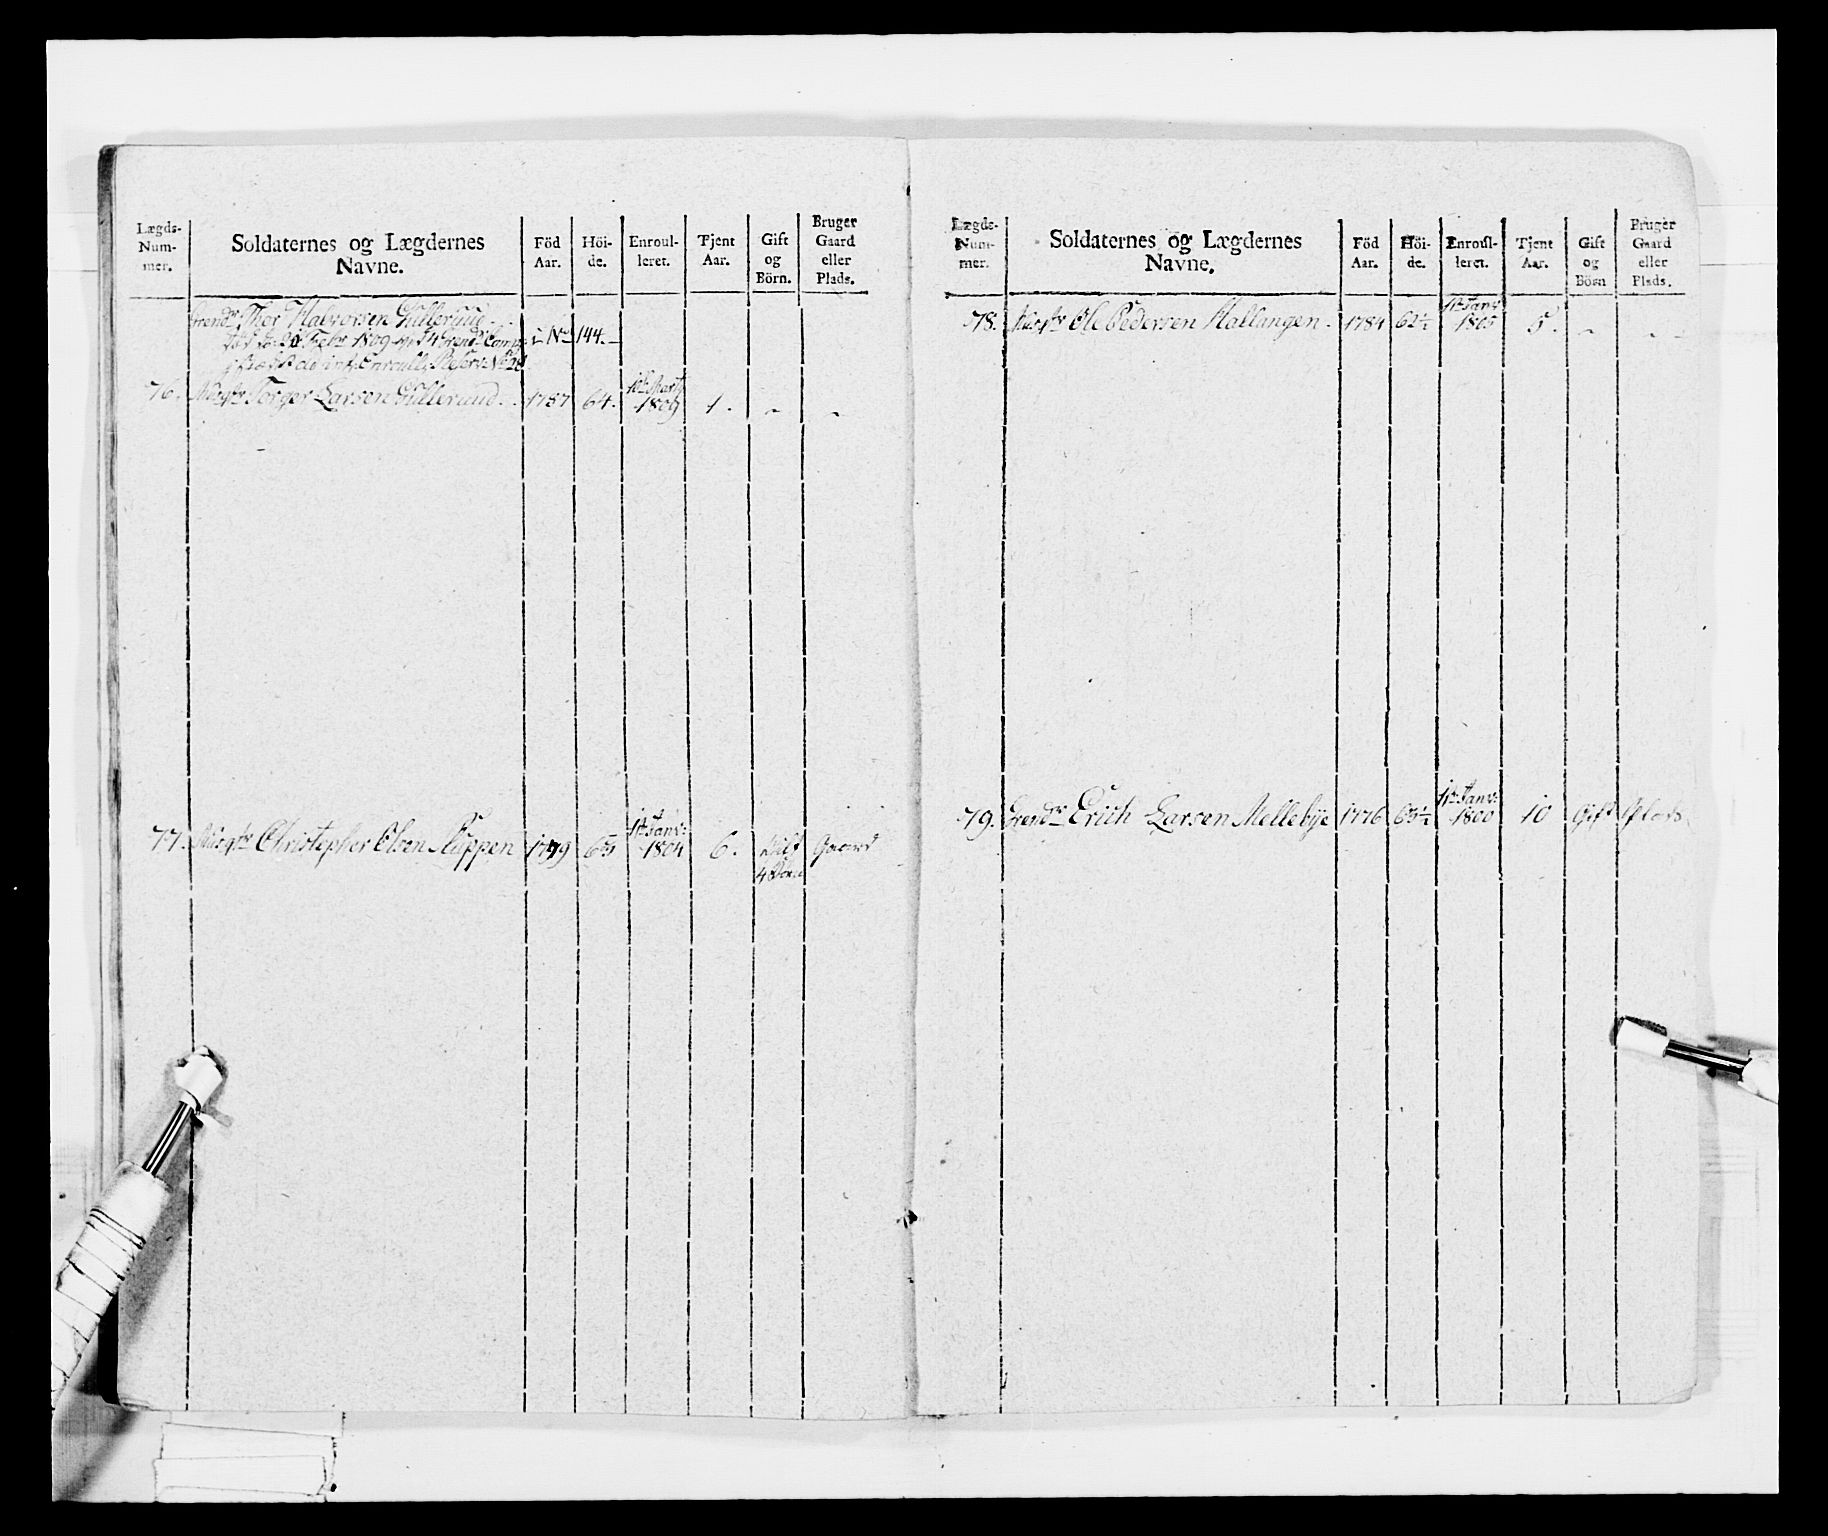 Lægds-Num-mer. Soldaternes og Lægdernes Navne. Föd Aar. Höi-de. Enroul-leret. Tjent Aar. Gift og Börn. Bruger Gaard eller Plads.
Grendr Thor Halvorsen Gullerud.
1809 4de Grendr Comp: No 144.
Enroull: Reserv:
76. Musqtr Torger Larsen Gullerud. 1787 64. Marty 1809 1. - -
77. Musqtr Christopher Olsen 1779 1te Janv: 1804 6. Gift 4 Börn Gaard
Lægds-Num-mer. Soldaternes og Lægdernes Navne. Föd Aar. Höi-de. Enroul-leret. Tjent Aar. Gift og Börn Bruger Gaard eller Plads.
78. Musqtr Ole Pedersen Hallangen. 1784 62½ 1te Janv: 1805 5. - -
79. Grendr Erich Larsen Mellebye 1776 1te Janv: 1800 10 Gift Plads